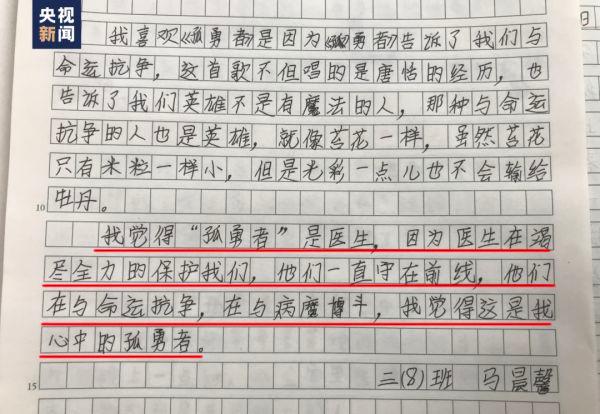 央视
新闻
我喜欢《孤勇者》是因为《孤勇者》告诉了我们与
命运抗争，这首歌不但唱的是唐恬的经历，也
告诉了我们英雄不是有魔法的人，那种与命运
抗争的人也是英雄，就像苔花一样，虽然苔花
只有米粒一样小，但是光彩一点儿也不会输给
10
牡丹。
我觉得“孤勇者”是医生，因为医生在竭
尽全力的保护我们，他们一直守在前线，他们
在与命运抗争，在与病魔博斗，我觉得这是我
心中的孤勇者。
15
三(8)班 马晨馨